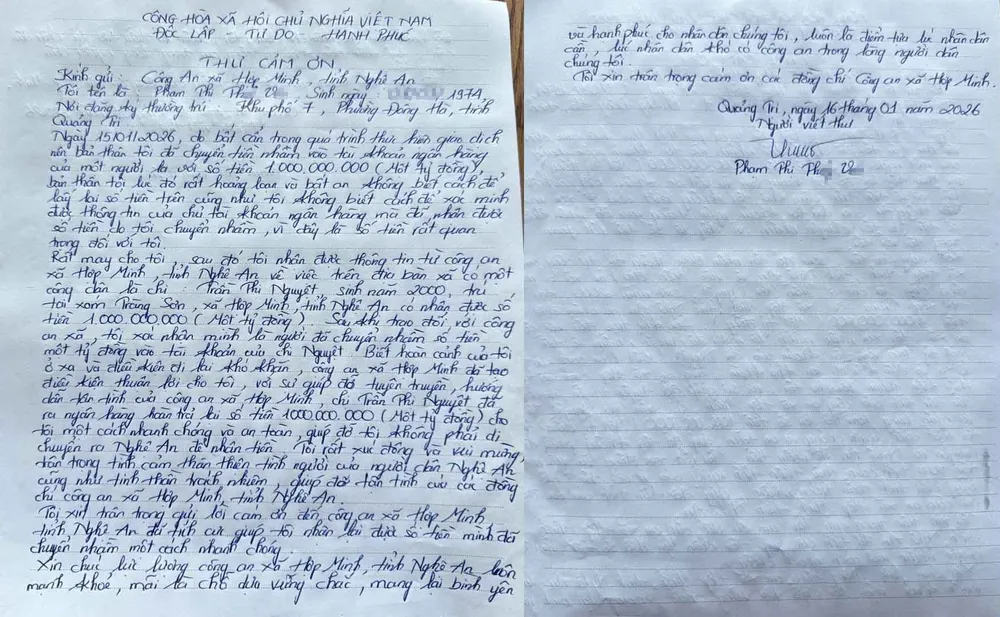 CÔNG HÒA XÃ HỘI CHỦ NGHĨA VIỆT NAM
ĐỘC LẬP - TỰ DO - HẠNH PHÚC
THƯ CẢM ƠN
Kính gửi : Công An xã Hợp Minh, tỉnh Nghệ An
Tôi tên là : Phạm Thị Th V . Sinh ngày : 1974
Nơi đăng ký thường trú : Khu phố 7, Phường Đông Hà, tỉnh
Quảng Trị
Ngày 15/01/2026, do bất cẩn trong quá trình thực hiện giao dịch
nên bản thân tôi đã chuyển tiền nhầm vào tài khoản ngân hàng
của một người lạ với số tiền 1.000.000.000 (Một tỷ đồng),
bản thân tôi lúc đó rất hoang loan và bất an không biết cách để
lấy lại số tiền trên cũng như tôi không biết cách để xác minh
được thông tin của chủ tài khoản ngân hàng mà đã nhận được
số tiền do tôi chuyển nhầm, vì đây là số tiền rất quan
trọng đối với tôi.
Rất may cho tôi, sau đó tôi nhận được thông tin từ công an
xã Hợp Minh, tỉnh Nghệ An về việc trên địa bàn xã có một
công dân là chị : Trần Thị Nguyệt, sinh năm 2000, trú
tại xóm Tràng Sơn, xã Hợp Minh, tỉnh Nghệ An có nhận được số
tiền 1.000.000.000 (Một tỷ đồng). Sau khi trao đổi với công
an xã, tôi xác nhận mình là người đã chuyển nhầm số tiền
một tỷ đồng vào tài khoản của chị Nguyệt. Biết hoàn cảnh của tôi
ở xa và điều kiện đi lại khó khăn, công an xã Hợp Minh đã tạo
điều kiện thuận lợi cho tôi, với sự giúp đỡ tuyên truyền, hướng
dẫn tận tình của công an xã Hợp Minh, chị Trần Thị Nguyệt đã
ra ngân hàng hoàn trả lại số tiền 1000.000.000 (Một tỷ đồng) cho
tôi một cách nhanh chóng và an toàn, giúp đỡ tôi không phải di
chuyển ra Nghệ An để nhận tiền. Tôi rất xúc động và vui mừng,
trân trọng tình cảm thân thiện tình người của người dân Nghệ An
cũng như tinh thần trách nhiệm, giúp đỡ tận tình của các đồng
chí công an xã Hợp Minh, tỉnh Nghệ An.
Tôi xin trân trọng gửi lời cảm ơn đến công an xã Hợp Minh,
tỉnh Nghệ An đã tích cực giúp tôi nhận lại được số tiền mình đã
chuyển nhầm một cách nhanh chóng.
Xin chúc lực lượng công an xã Hợp Minh, tỉnh Nghệ An luôn
mạnh khỏe, mãi là chỗ dựa vững chắc, mang lại bình yên
và hạnh phúc cho nhân dân chúng tôi, luôn là điểm tựa lúc nhân dân
cần, lúc nhân dân khó có công an trong lòng người dân
chúng tôi.
Tôi xin trân trọng cảm ơn các đồng chí Công an xã Hợp Minh.
Quảng Trị, ngày 16 tháng 01 năm 2026
Người viết thư
Phạm Thị Th V